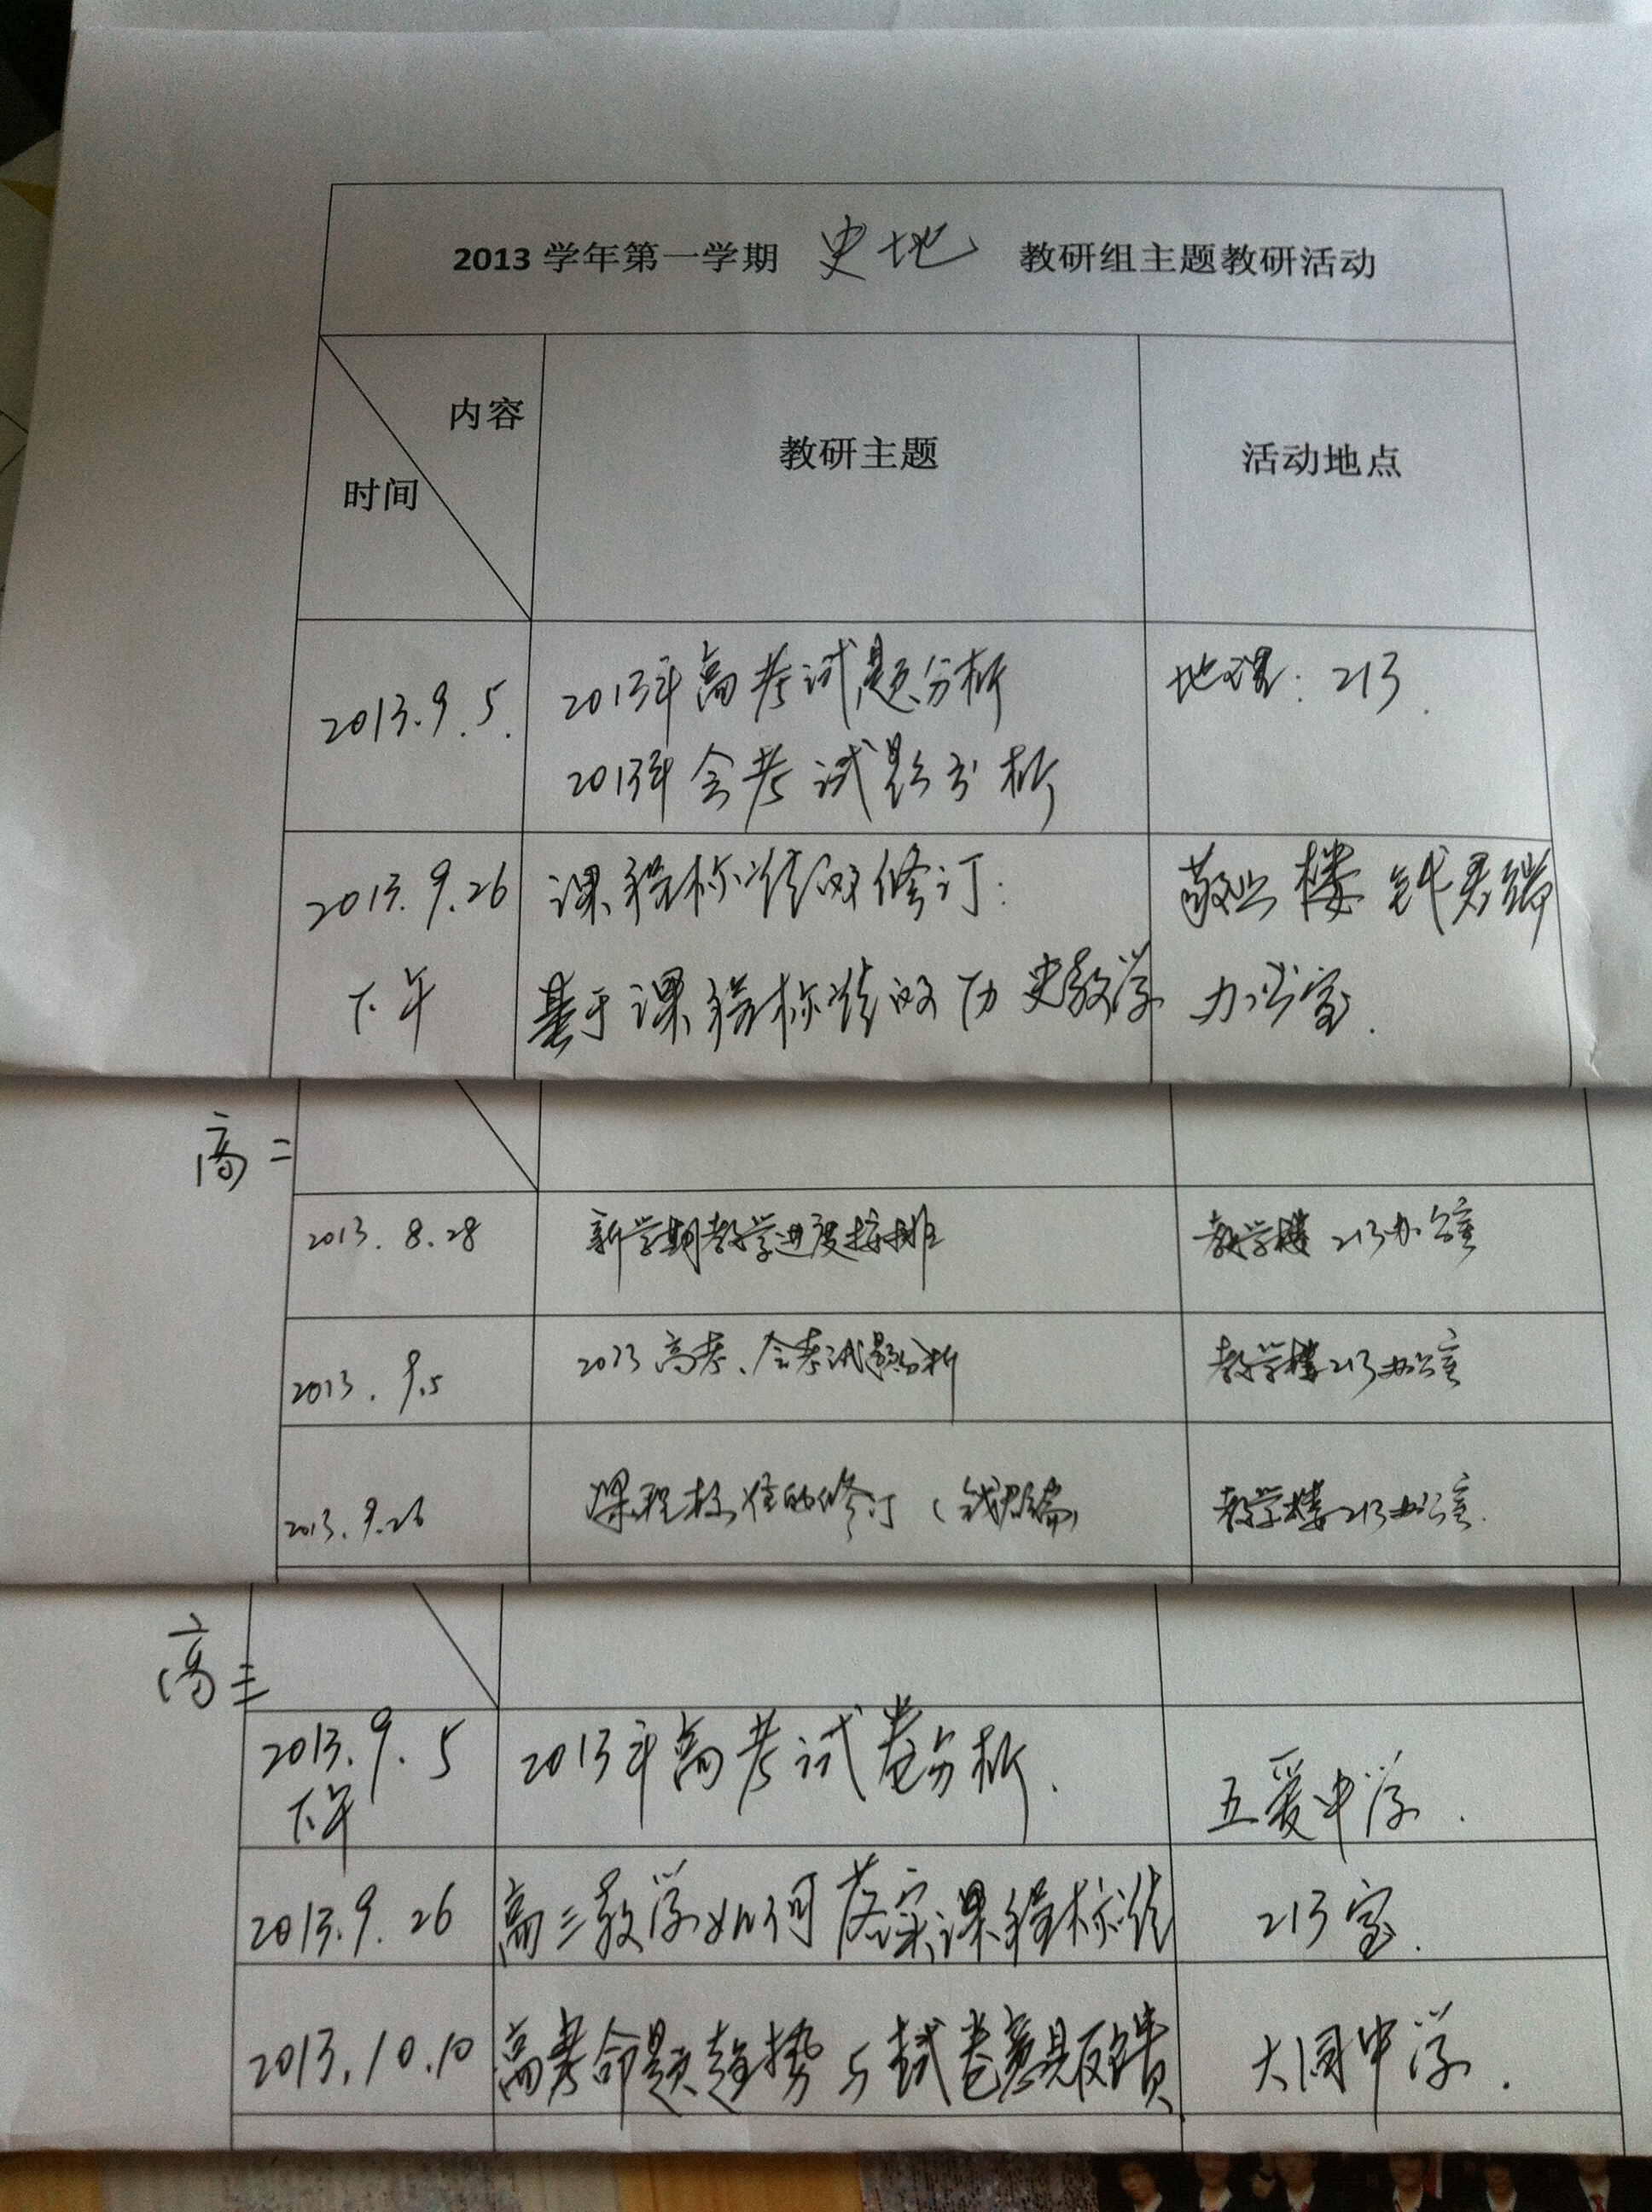 2013 学年第一学期 史地 教研组主题教研活动
内容
时间
教研主题
活动地点
2013.9.5.
2013年高考试题分析
2013年会考试题分析
地理: 213.
2013.9.26
下午
课程标准的修订:
基于课程标准的历史教学
敬业楼 钱君端
办公室.
高二
2013.8.28
新学期教学进度按排
教学楼213办公室
2013.9.5
2013高考、会考试题分析
教学楼213办公室
2013.9.26
课程标准的修订（钱君端）
教学楼213办公室.
高三
2013.9.5
下午
2013年高考试卷分析.
五爱中学.
2013.9.26
高三教学如何落实课程标准
213室.
2013.10.10
高考命题趋势与试卷意见反馈
大同中学.